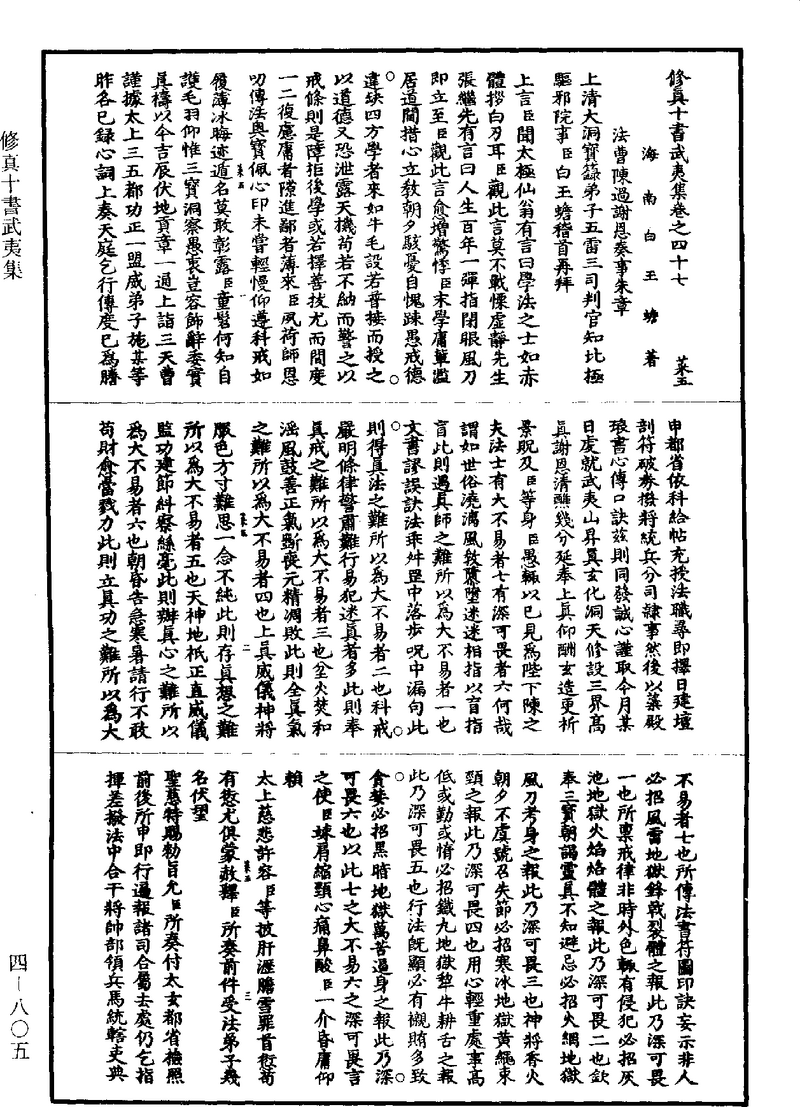 修真十書武夷集卷之四十七　菜五
海南白玉蟾著
法曹陳過謝恩奏事朱章
上清大洞寶籙弟子五雷三司判官知北極
驅邪院事臣白玉蟾稽首再拜
上言臣聞太極仙翁有言曰學法之士如赤
體拶白刃耳臣觀此言莫不戰慄虛靜先生
張繼先有言曰人生百年一彈指閉眼風刀
即立至臣觀此言愈增驚悸臣末學庸軰濫
居道闕措心立敎朝夕駭憂自愧踈愚戒德
違缺四方學者來如牛毛設若普接而授之
以道德又恐泄露天機苟若不納而警之以
戒條則是障拒後學或若擇善拔尤而間度
一二復慮庸者隙進鄙者薄來臣夙荷師恩
叨傳法奥寶佩心印未嘗輕慢仰遵科戒如
履薄冰晦迹遁名莫敢彰露臣童髫何知自
護毛羽仰惟三寶洞察愚衷豈容飾辭委實
眞禱以今吉辰伏地貢章一通上詣三天曹
謹據太上三五都功正一盟威弟子施某等
昨各已録心詞上奏天庭乞行傳度已爲謄
申都省依科給帖充授法職尋即擇日建壇
剖符破劵撥將統兵分司隷事然後以蘂殿
琅書心傳口訣兹則同發誠心謹取今月某
日虔就武夷山昇眞玄化洞天修設三界高
眞謝恩清醮幾分延奉上眞仰酬玄造更祈
景貺及臣等身臣愚輒以已見爲陛下陳之
夫法士有大不易者七有深可畏者六何哉
謂如世俗澆漓風敎隳墮迷迷相指以盲指
盲此則遇眞師之難所以爲大不易者一也
文書謬誤訣法乖舛罡中落步呪中漏句此
則得眞法之難所以爲大不易者二也科戒
嚴明條律警肅難行易犯迷眞者多此則奉
眞戒之難所以爲大不易者三也坌火焚和
滛風鼓善正氣斵喪元精凋敗此則全眞氣
之難所以爲大不易者四也上眞威儀神將
服色方寸難思一念不純此則存眞想之難
所以爲大不易者五也天神地祇正直威儀
監功建節糾察絲毫此則辦眞心之難所以
爲大不易者六也朝昏告急寒暑請行不敢
苟財愈當戮力此則立眞功之難所以爲大
不易者七也所傳法書符圖印訣妄示非人
必招風雷地獄鋒戟裂體之報此乃深可畏
一也所禀戒律非時外色輒有侵犯必招灰
池地獄火焰烙體之報此乃深可畏二也欽
奉三寶朝謁靈眞不知避忌必招火網地獄
風刀考身之報此乃深可畏三也神將香火
朝夕不虔號召失節必招寒冰地獄黃繩束
頸之報此乃深可畏四也用心輕重處事高
低或勤或惰必招鐵九地獄犂牛耕舌之報
此乃深可畏五也行法旣顯必有襯賄多致
貪婪必招黑暗地獄萬苦逼身之報此乃深
可畏六也以此七之大不易六之深可畏言
之使臣竦肩縮頸心痛鼻酸臣一介昏庸仰
賴
太上慈悲許容臣等披肝瀝膽雪罪首愆苟
有愆尤俱蒙赦釋臣所奏前件受法弟子幾
名伏望
聖慈特賜勑旨允臣所奏付太玄都省撿照
前後所申即行遍報諸司合屬去處仍乞指
揮差撥法中合干將帥部領兵馬統轄吏典
修真十書武夷集
四－八〇五